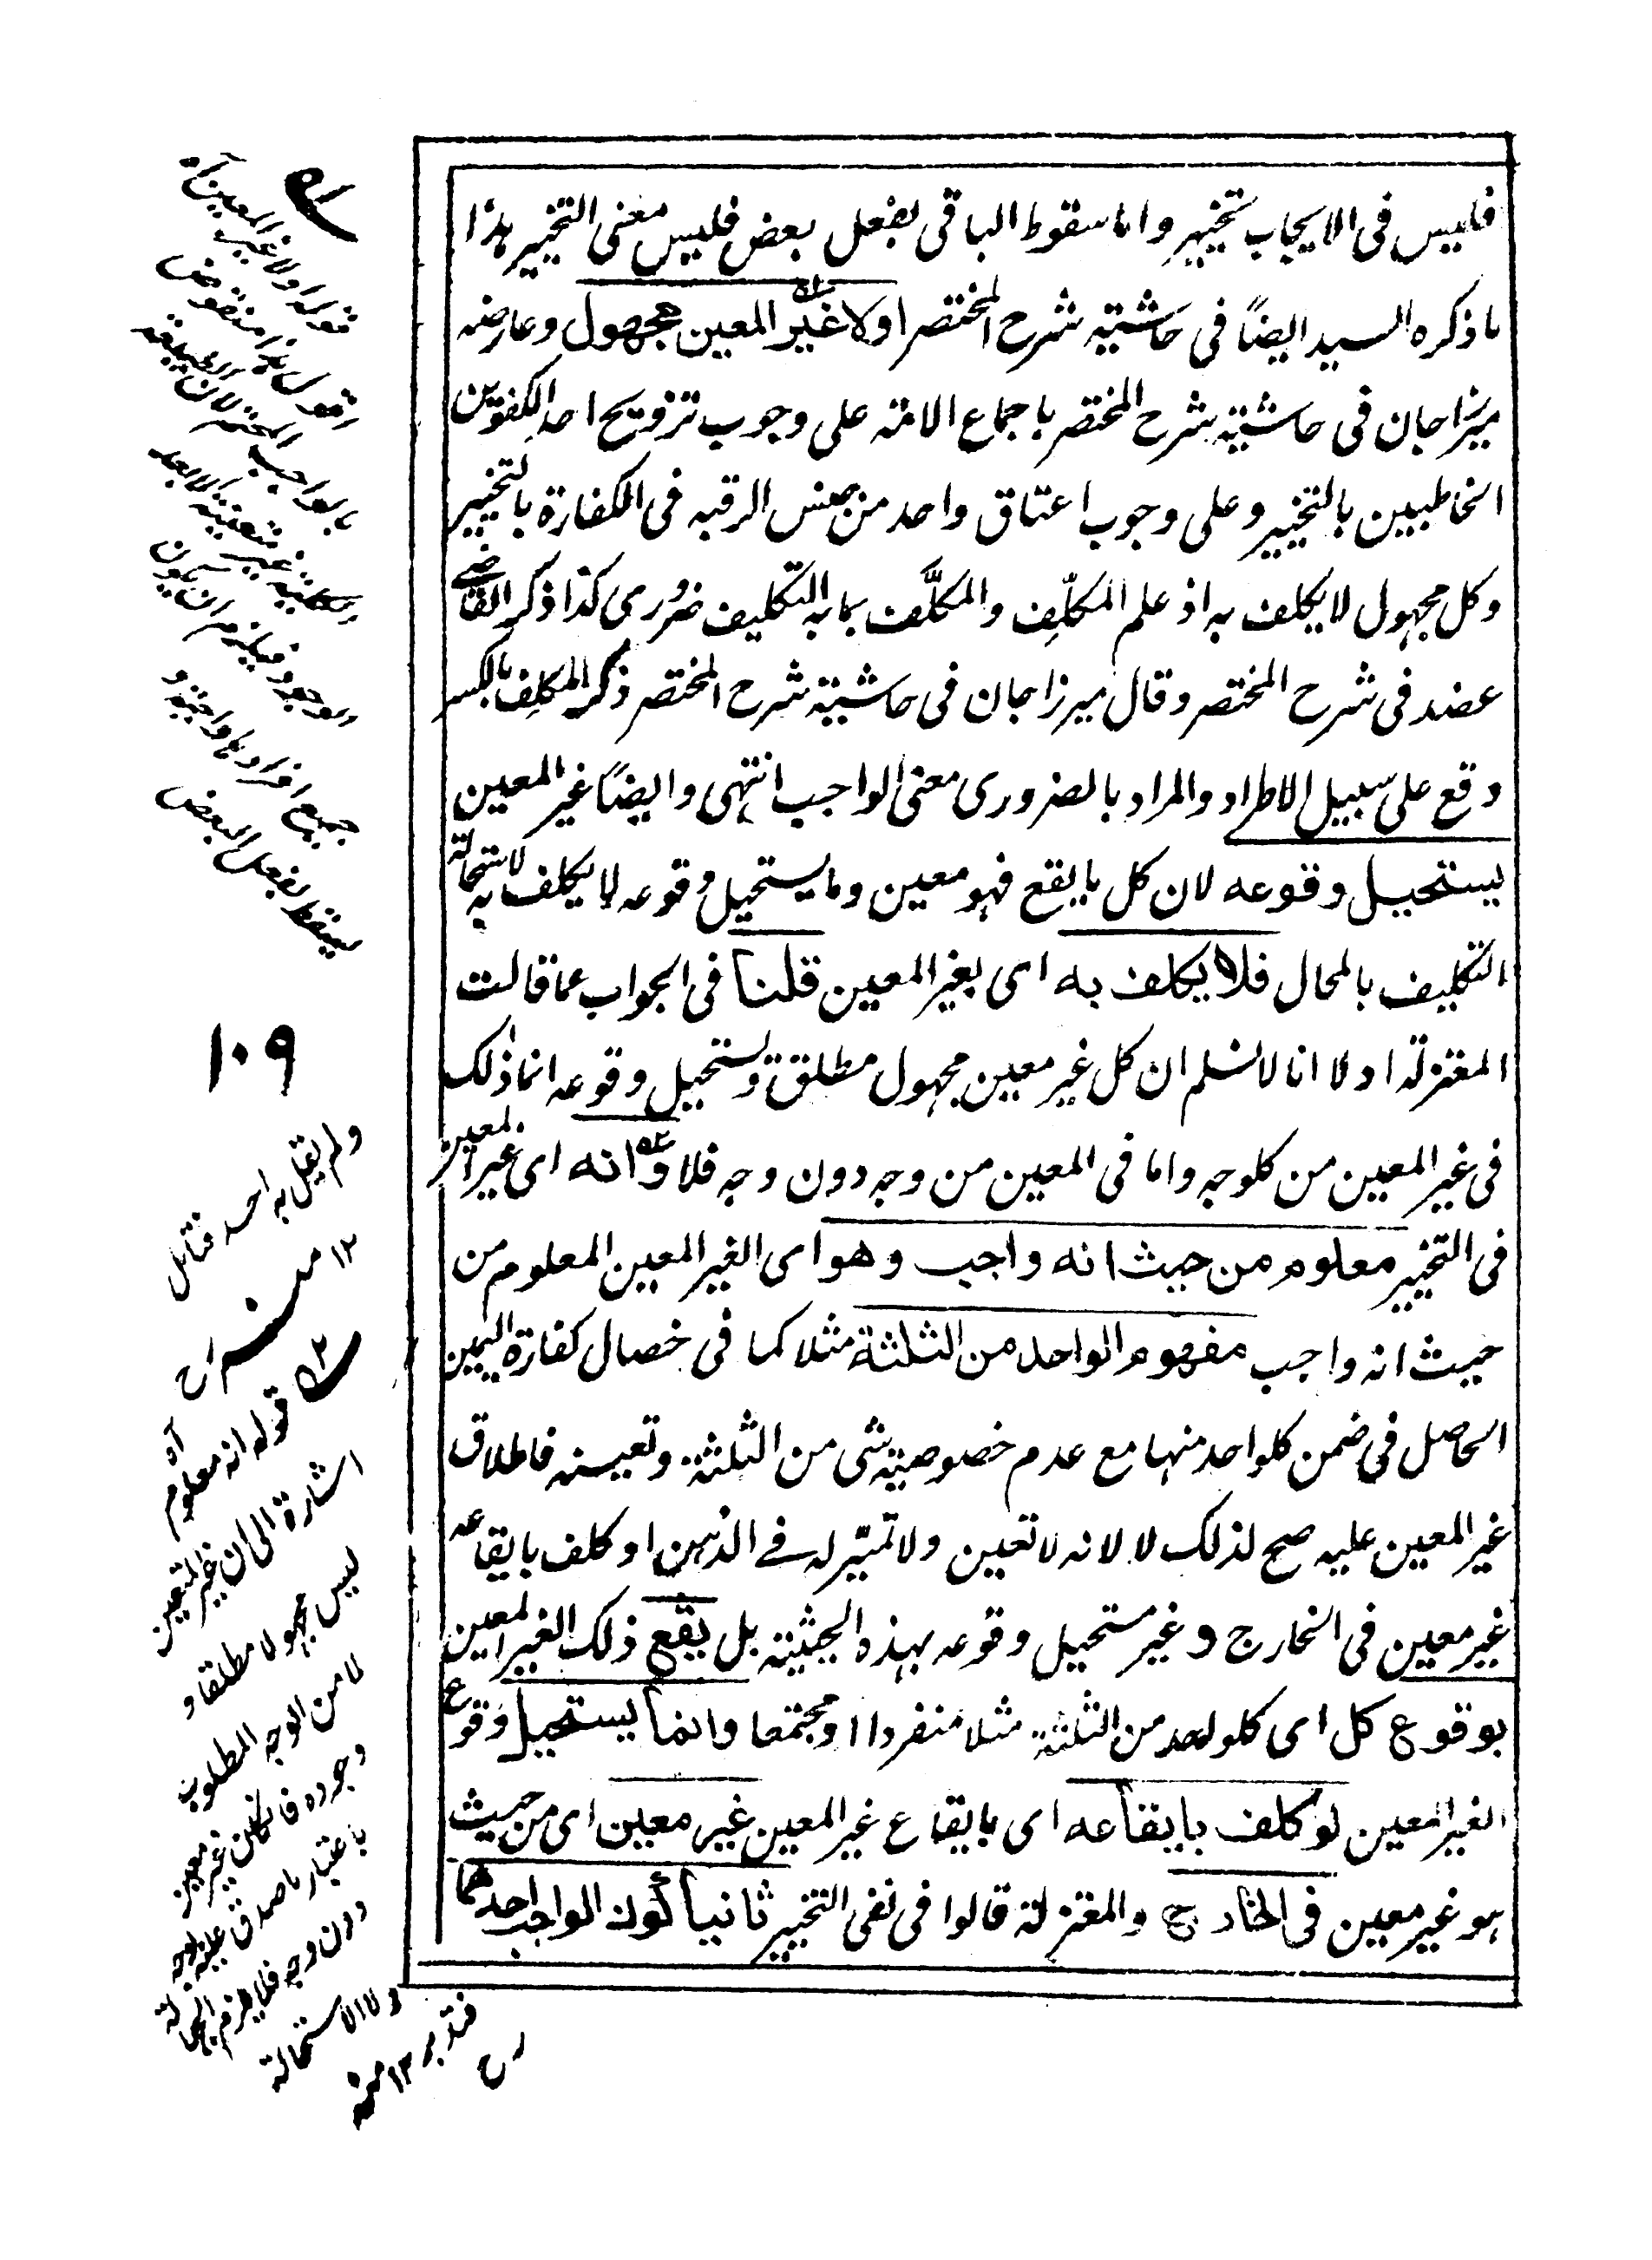 فليس فى الايجاب تخيير واما سقوط الباقى بفعل بعض فليس معنى التخيير هذا
ما ذكره السيد ايضًا فى حاشيته شرح المختصر اولا غير المعين مجهول وعارضه
ميرزاجان فى حاشية شرح المختصر باجماع الامة على وجوب تزويج احد الكفوين
الخاطبين بالتخيير وعلى وجوب اعتاق واحد من جنس الرقبه فى الكفارة بالتخيير
وكل مجهول لا يكلف به اذ علم المكلِّف والمكلَّف بما به التكليف ضرورى كذا ذكر القاضى
عضد فى شرح المختصر وقال ميرزاجان فى حاشية شرح المختصر ذكر المكلِف بالكسر
وقع على سبيل الاطراد والمراد بالضرورى معنى الواجب انتهى وايضًا غير المعين
يستحيل وقوعه لان كل ما يقع فهو معين وما يستحيل وقوعه لا يكلف به لاستحالة
التكليف بالمحال فلا يكلف به اى بغير المعين قلنا فى الجواب عما قالت
المعتزلة اولا انا لا نسلم ان كل غير معين مجهول مطلق ويستحيل وقوعه انما ذلك
فى غير المعين من كلوجه واما فى المعين من وجه دون وجه فلا و انه اى غير المعين
فى التخيير معلوم من حيث انه واجب وهو اى الغير المعين المعلوم من
حيث انه واجب مفهوم الواحد من الثلثة مثلا كما فى خصال كفارة اليمين
الحاصل فى ضمن كلواحد منها مع عدم خصوصية شى من الثلثة وتعيينه فاطلاق
غير المعين عليه صح لذلك لا لانه لا تعين ولا تميّز له فى الذهن او كلف بايقاعه
غير معين فى الخارج و غير مستحيل وقوعه بهذه الحيثية بل يقع ذلك الغير المعين
بوقوع كل اى كلواحد من الثلثة مثلا منفردا او مجتمعا وانما يستحيل وقوع
الغير المعين لو كلف بايقاعه اى بايقاع غير المعين غير معين اى من حيث
هو غير معين فى الخارج والمعتزلة قالوا فى نفى التخيير ثانيا كون الواجب احدهما
قوله اولا غير المعين آه
اقول هذا منقوض
بالواجب المخير لان الحقيقة
الكلية غير متعينة الا بعد
الوجود فيلزم ان يكون
جميع افرادها واجبة و
يسقط بفعل البعض
١٠٩
ولم يقل به احد فتامل
١٢ منه رح
٥٢ قوله انه معلوم آه
اشارة الى ان غير المتعين
ليس مجهولا مطلقا و
لا من الوجه المطلوب
وجوده فالكلى غير معين
باعتبار ما صدق عليه بوجه
دون وجه فلا يلزم الجهالة
ولا الاستحالة
فتدبر ١٢ منه
رح